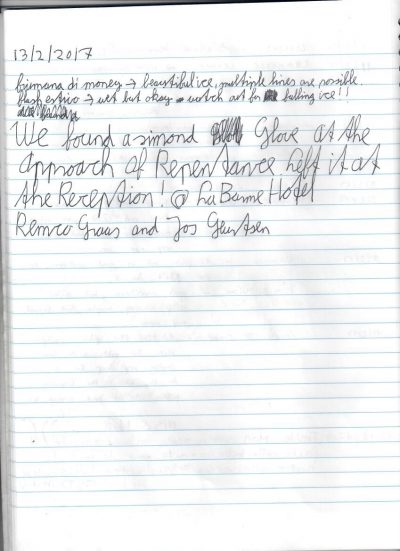 13/2/2017
Cascata di money → beautiful ice, multiple lines are possible.
flash estivo → wet but okay watch out for falling ice!!
We found a simond Glove at the
approach of Repentance. Left it at
the Reception! @ La Barme Hotel
Remco Graas and Jos Geurtsen